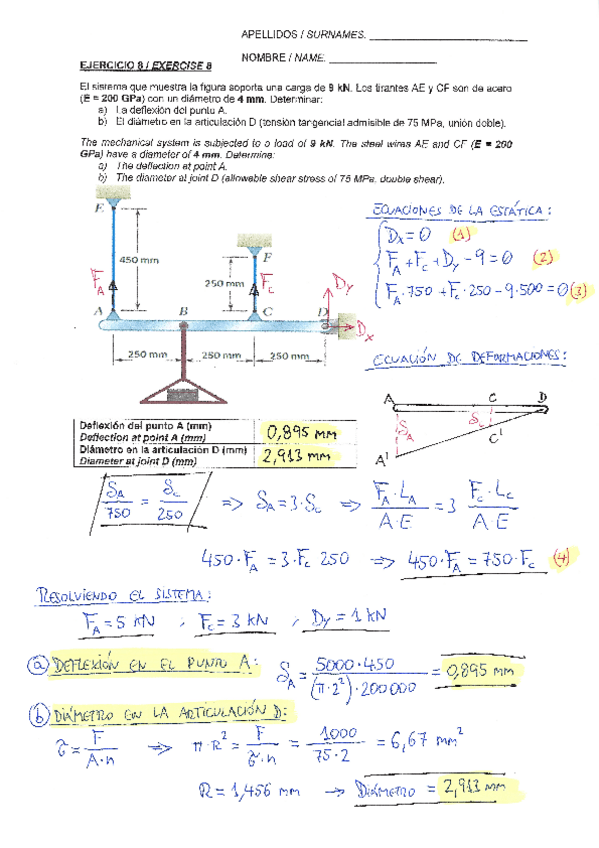 APELLIDOS / SURNAMES.
NOMBRE / NAME.
EJERCICIO 8 / EXERCISE 8
El sistema que muestra la figura soporta una carga de 9 kN. Los tirantes AE y CF son de acero
(E = 200 GPa) con un diámetro de 4 mm. Determinar:
a) La deflexión del punto A.
b) El diámetro en la articulación D (tensión tangencial admisible de 75 MPa, unión doble).
The mechanical system is subjected to a load of 9 kN. The steel wires AE and CF (E = 200
GPa) have a diameter of 4 mm. Determine:
a) The deflection at point A.
b) The diameter at joint D (allowable shear stress of 75 MPa, double shear).
E
450 mm
F
250 mm
F_A
F_C
D_y
A B C D
D_x
250 mm 250 mm 250 mm
ECUACIONES DE LA ESTÁTICA:
D_x = 0 (1)
F_A + F_C + D_y - 9 = 0 (2)
F_A · 750 + F_C · 250 - 9·500 = 0 (3)
ECUACIÓN DE DEFORMACIONES:
A C D
δ_A δ_C
C'
A'
Deflexión del punto A (mm)
Deflection at point A (mm)
0,895 mm
Diámetro en la articulación D (mm)
Diameter at joint D (mm)
2,913 mm
δ_A/750 = δ_C/250 => δ_A = 3·δ_C => F_A·L_A/A·E = 3 F_C·L_C/A·E
450·F_A = 3·F_C 250 => 450·F_A = 750·F_C (4)
RESOLVIENDO EL SISTEMA:
F_A = 5 kN ; F_C = 3 kN ; D_y = 1 kN
a) DEFLEXIÓN EN EL PUNTO A: δ_A = 5000·450/(π·2²)·200000 = 0,895 mm
b) DIÁMETRO EN LA ARTICULACIÓN D:
τ = F/A·n => π·R² = F/τ·n = 1000/75·2 = 6,67 mm²
R = 1,456 mm → DIÁMETRO = 2,913 mm